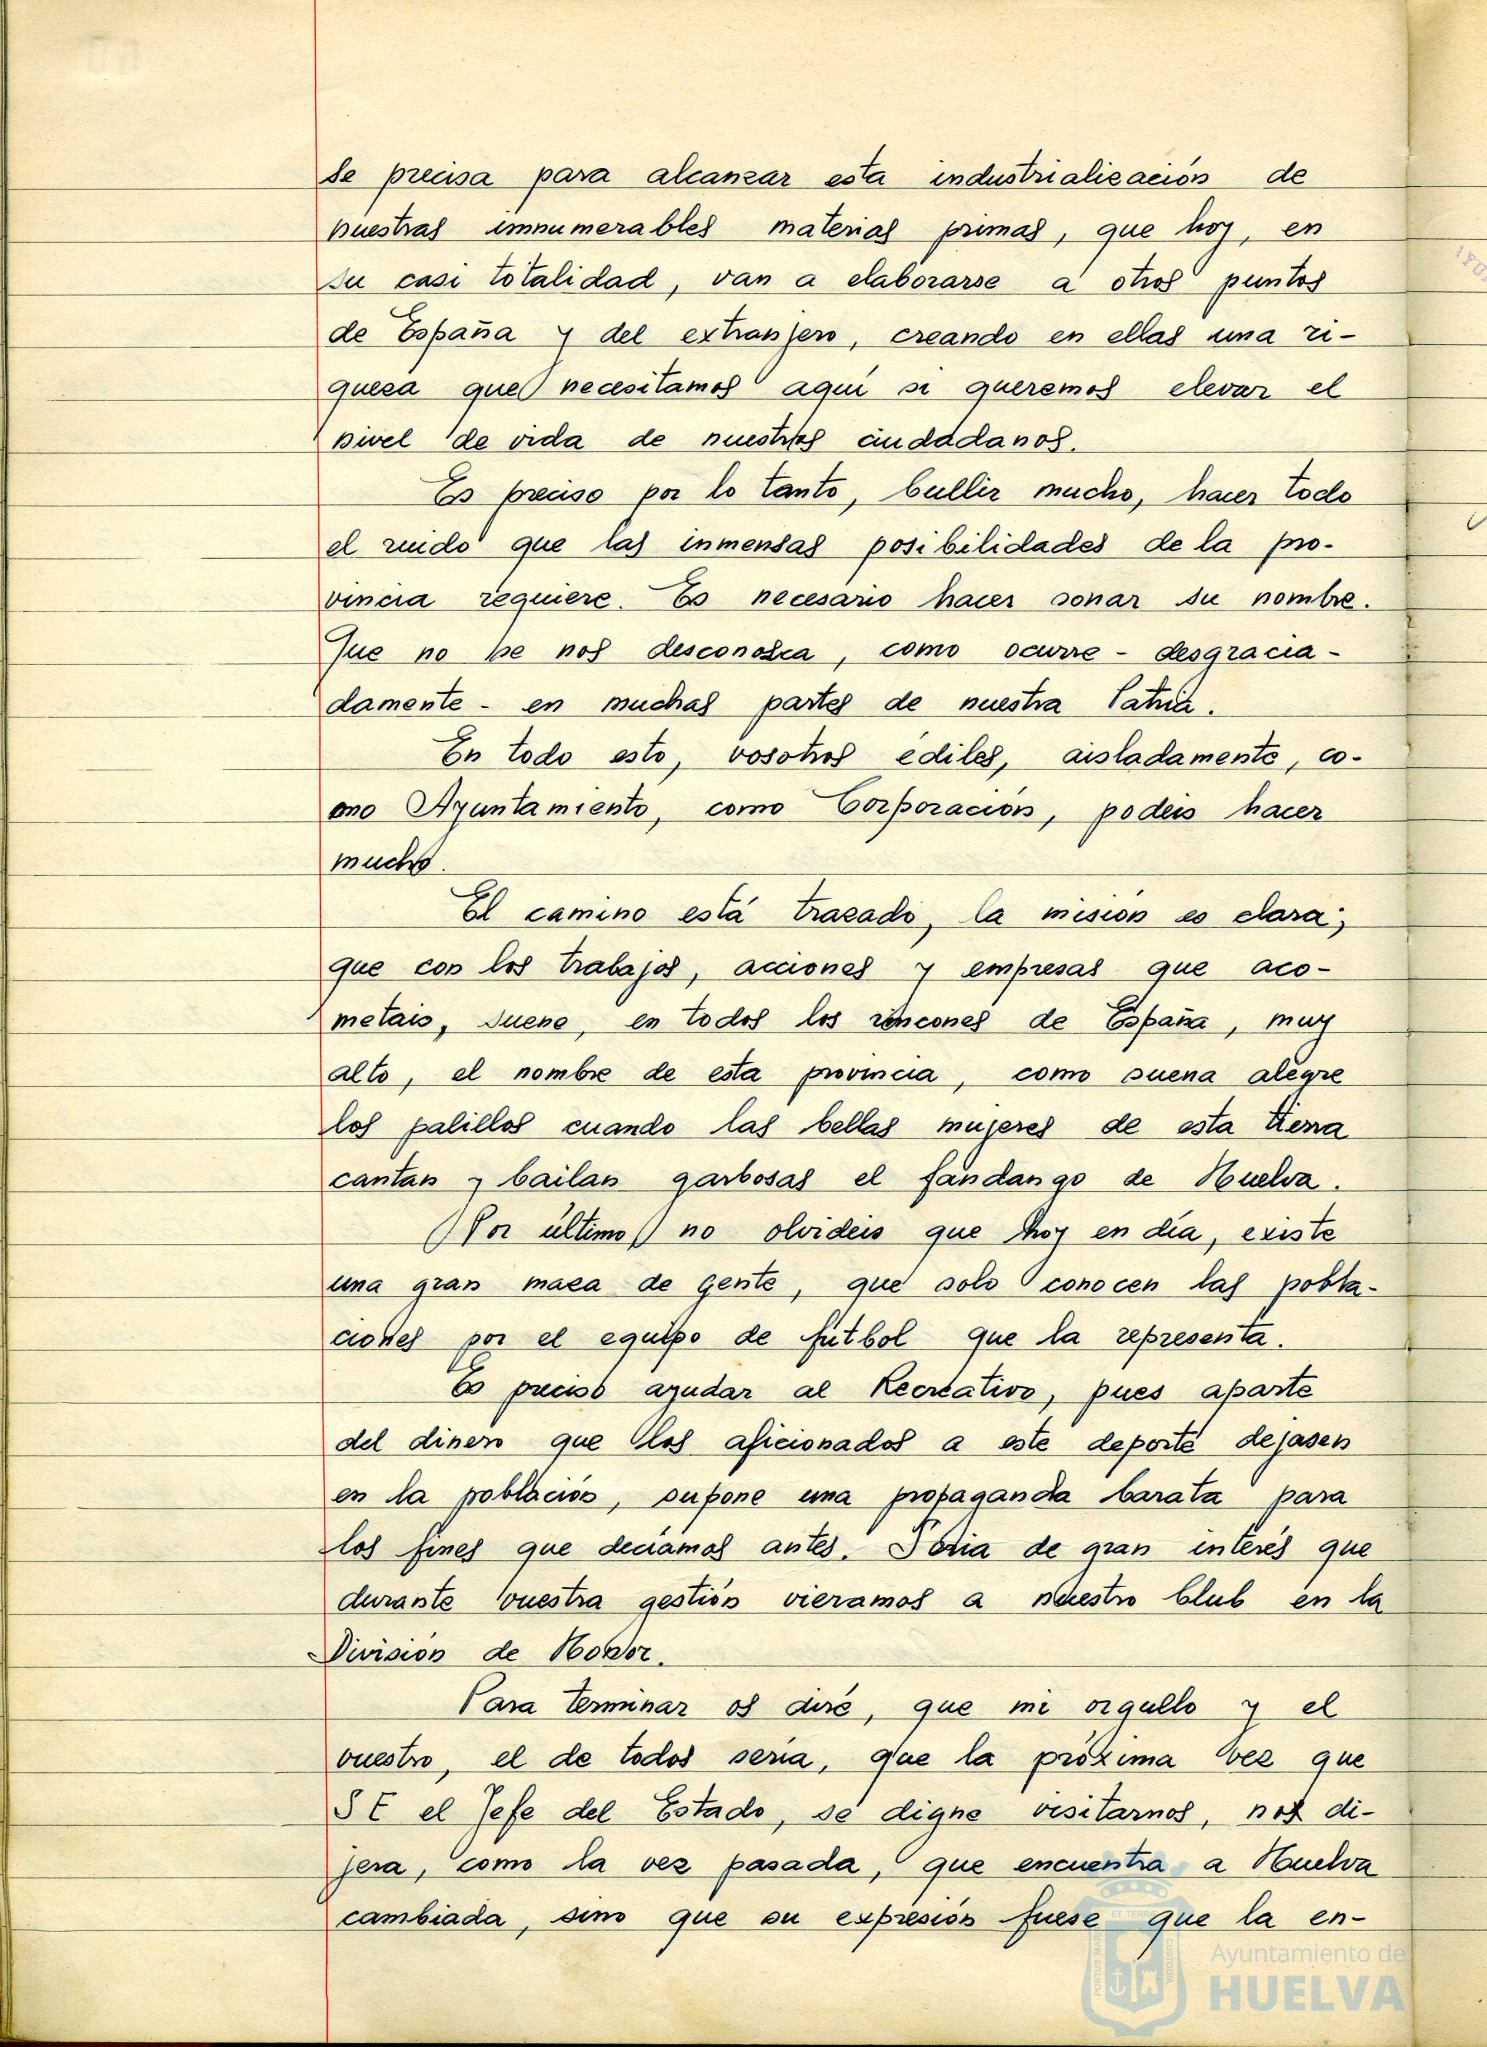 se precisa para alcanzar esta industrialización de
nuestras imnumerables materias primas, que hoy, en
su casi totalidad, van a elaborarse a otros puntos
de España y del extranjero, creando en ellas una ri-
queza que necesitamos aquí si queremos elevar el
nivel de vida de nuestros ciudadanos.
Es preciso por lo tanto, bullir mucho, hacer todo
el ruido que las inmensas posibilidades de la pro-
vincia requiere. Es necesario hacer sonar su nombre.
Que no se nos desconozca, como ocurre - desgracia-
damente - en muchas partes de nuestra Patria.
En todo esto, vosotros ediles, aisladamente, co-
mo Ayuntamiento, como Corporación, podeis hacer
mucho.
El camino está trazado, la misión es clara;
que con los trabajos, acciones y empresas que aco-
metais, suene, en todos los rincones de España, muy
alto, el nombre de esta provincia, como suena alegre
los palillos cuando las bellas mujeres de esta tierra
cantan y bailan garbosas el fandango de Huelva.
Por último no olvideis que hoy en día, existe
una gran maza de gente, que solo conocen las pobla-
ciones por el equipo de fútbol que la representa.
Es preciso ayudar al Recreativo, pues aparte
del dinero que los aficionados a este deporte dejasen
en la población, supone una propaganda barata para
los fines que decíamos antes. Sería de gran interés que
durante vuestra gestión vieramos a nuestro Club en la
División de Honor.
Para terminar os diré, que mi orgullo y el
vuestro, el de todos sería, que la próxima vez que
S E el Jefe del Estado, se digne visitarnos, nos di-
jera, como la vez pasada, que encuentra a Huelva
cambiada, sino que su expresión fuese que la en-
Ayuntamiento de
HUELVA